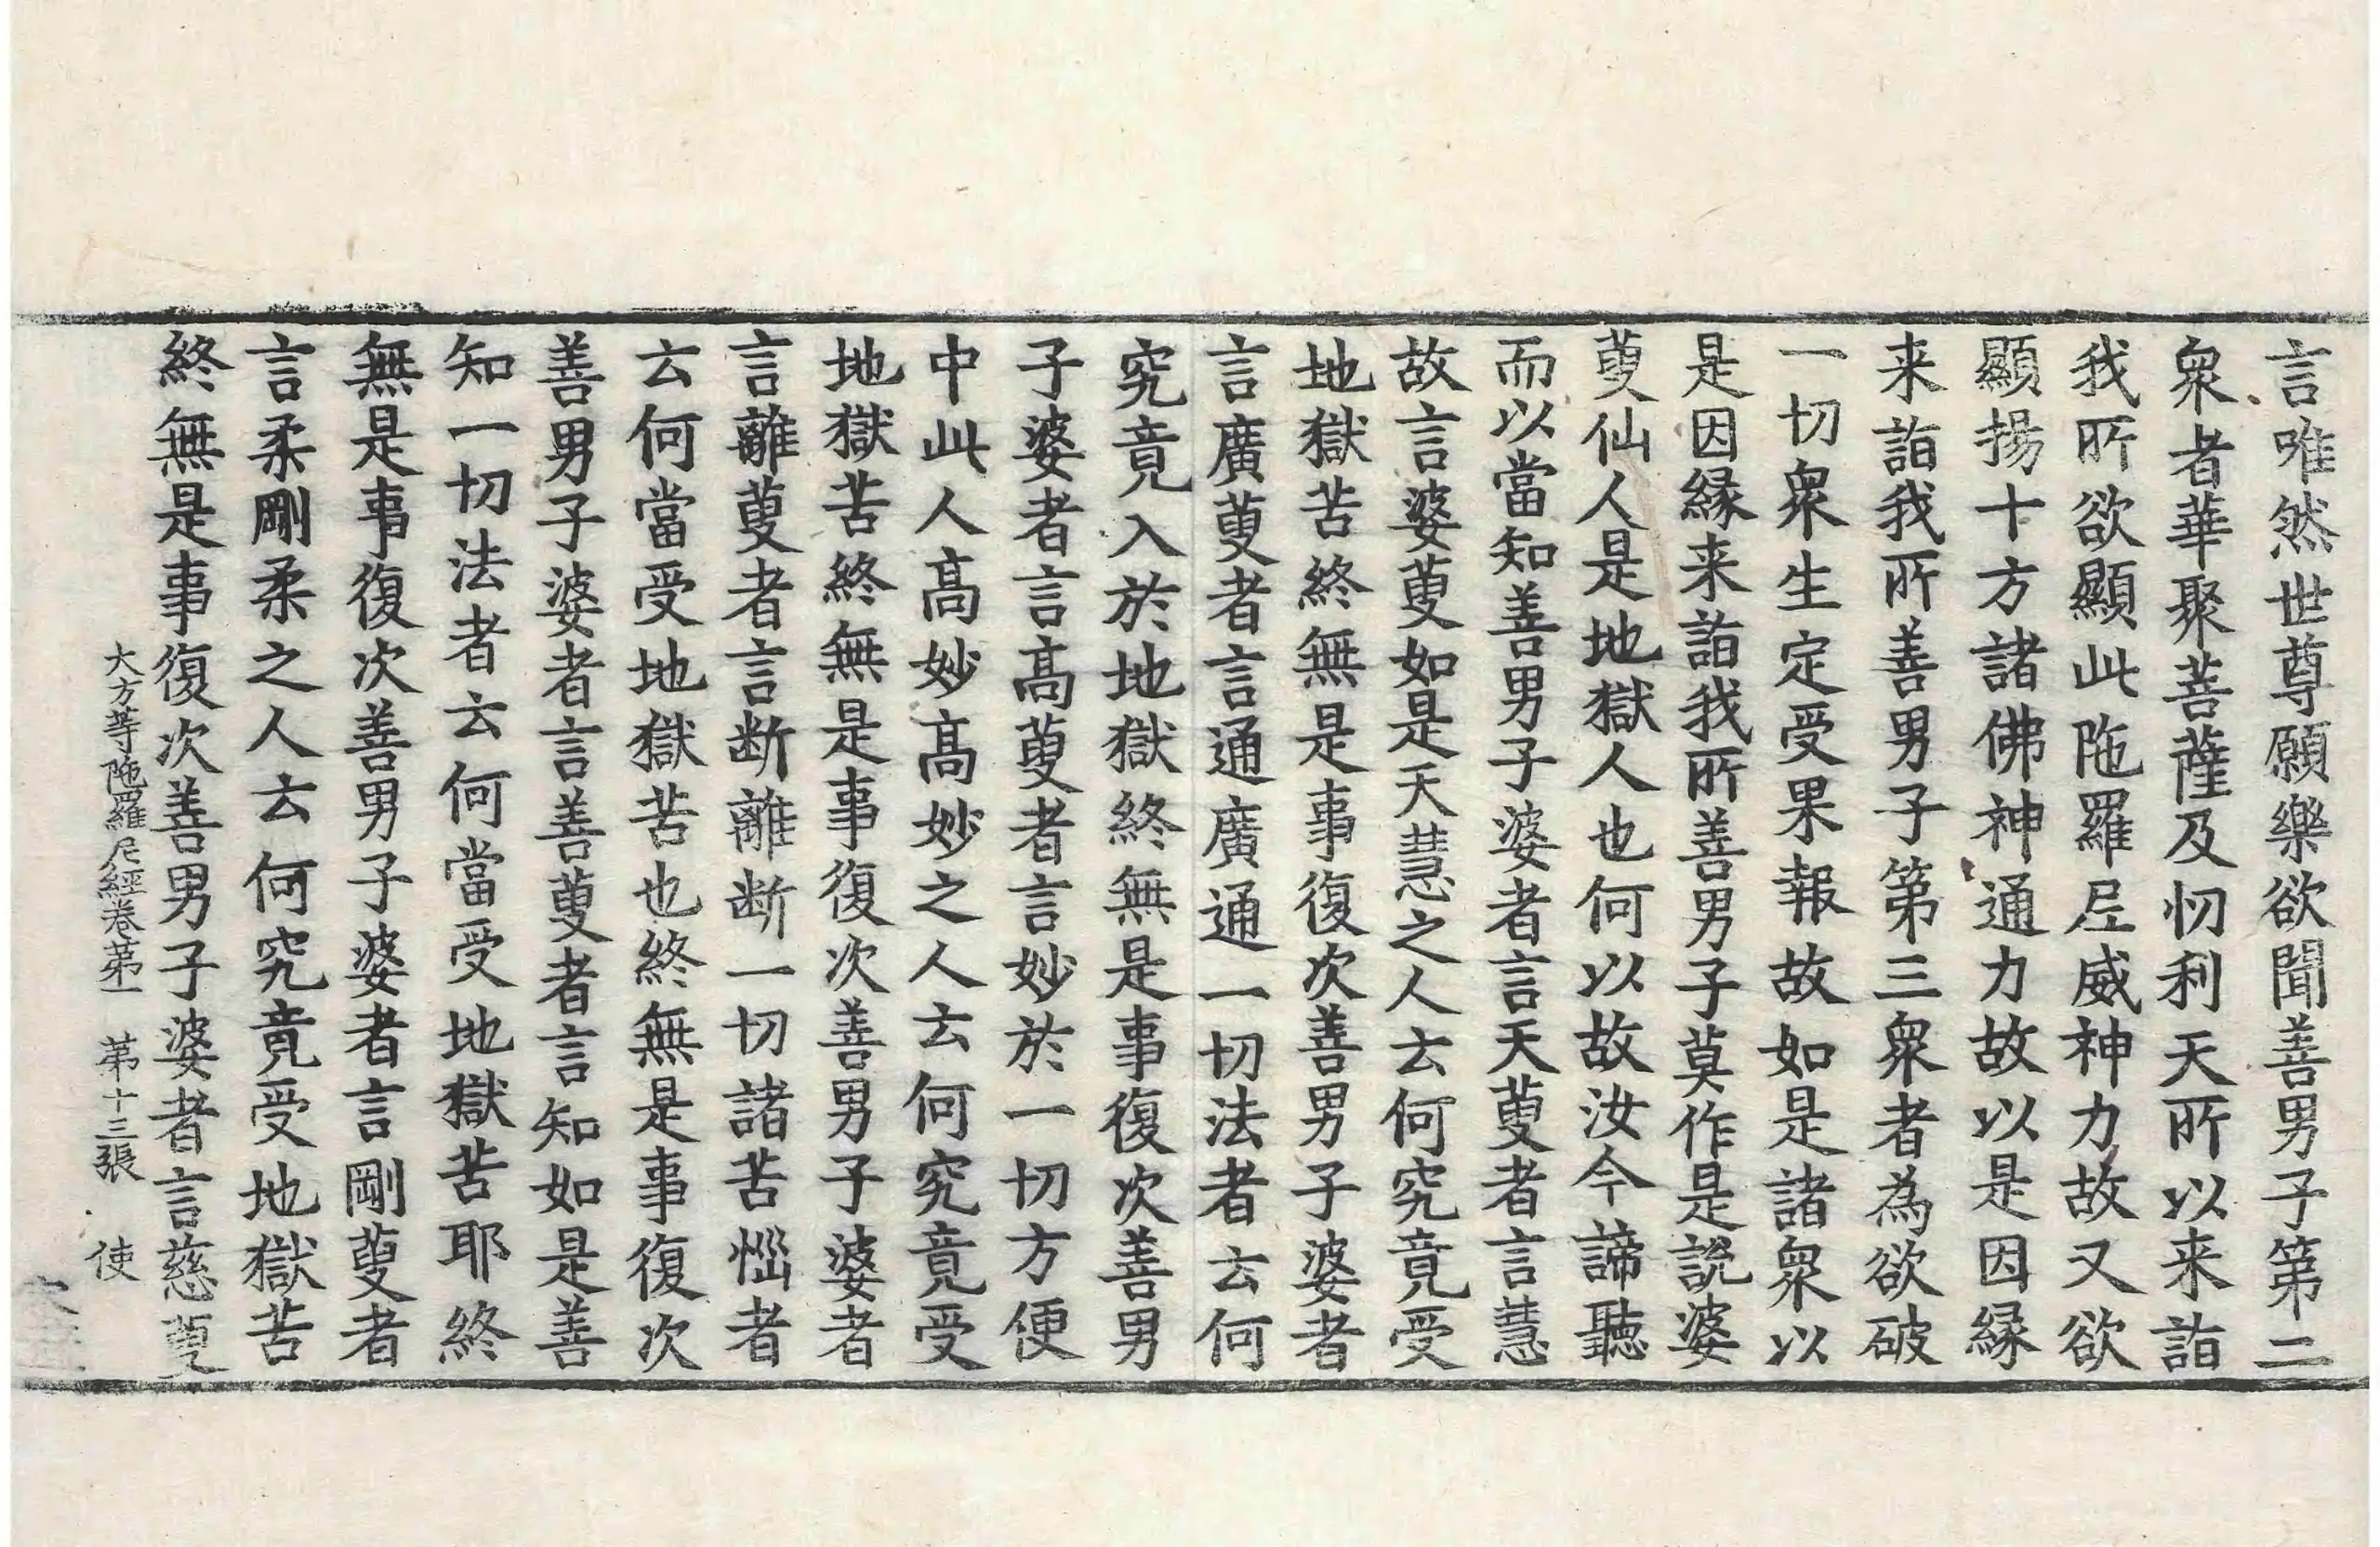 言唯然世尊願樂欲聞善男子第二
衆者華聚菩薩及忉利天所以来詣
我所欲顯此陁羅尼威神力故又欲
顯揚十方諸佛神通力故以是因縁
来詣我所善男子第三衆者為欲破
一切衆生定受果報故如是諸衆以
是因縁来詣我所善男子莫作是説婆
藪仙人是地獄人也何以故汝今諦聽
而以當知善男子婆者言天藪者言慧
故言婆藪如是天慧之人云何究竟受
地獄苦終無是事復次善男子婆者
言廣藪者言通廣通一切法者云何
究竟入於地獄終無是事復次善男
子婆者言髙藪者言妙於一切方便
中此人髙妙髙妙之人云何究竟受
地獄苦終無是事復次善男子婆者
言離藪者言断離断一切諸苦惱者
云何當受地獄苦也終無是事復次
善男子婆者言善藪者言知如是善
知一切法者云何當受地獄苦耶終
無是事復次善男子婆者言剛藪者
言柔剛柔之人云何究竟受地獄苦
終無是事復次善男子婆者言慈藪
大方等陁羅尼經卷第一 第十三張 使